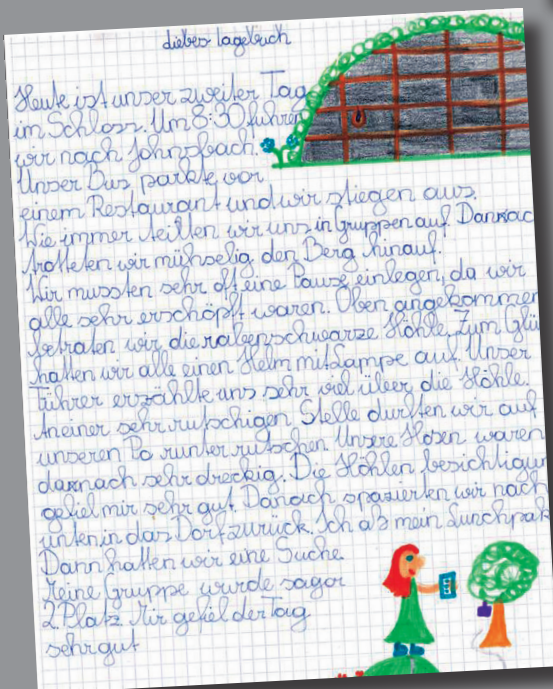 Liebes Tagebuch
Heute ist unser zweiter Tag
im Schloss. Um 8:30 fuhren
wir nach Johnsbach.
Unser Bus parkte vor
einem Restaurant und wir stiegen aus.
Wie immer teilten wir uns in Gruppen auf. Dannac
trotteten wir mühselig den Berg hinauf.
Wir mussten sehr oft eine Pause einlegen, da wir
alle sehr erschöpft waren. Oben angekommen
betraten wir die rabenschwarze Höhle. Zum Glü
hatten wir alle einen Helm mit Lampe auf. Unser
Führer erzählte uns sehr viel über die Höhle.
An einer sehr rutschigen Stelle durften wir auf
unseren Po runter rutschen. Unsere Hosen waren
darnach sehr dreckig. Die Höhlen besichtigun
gefiel mir sehr gut. Danach spazierten wir nach
unten in das Dorf zurück. Ich aß mein Lunchpak
Dann hatten wir eine Suche.
Meine Gruppe wurde sogar
2. Platz. Mir gefiel der Tag
sehr gut